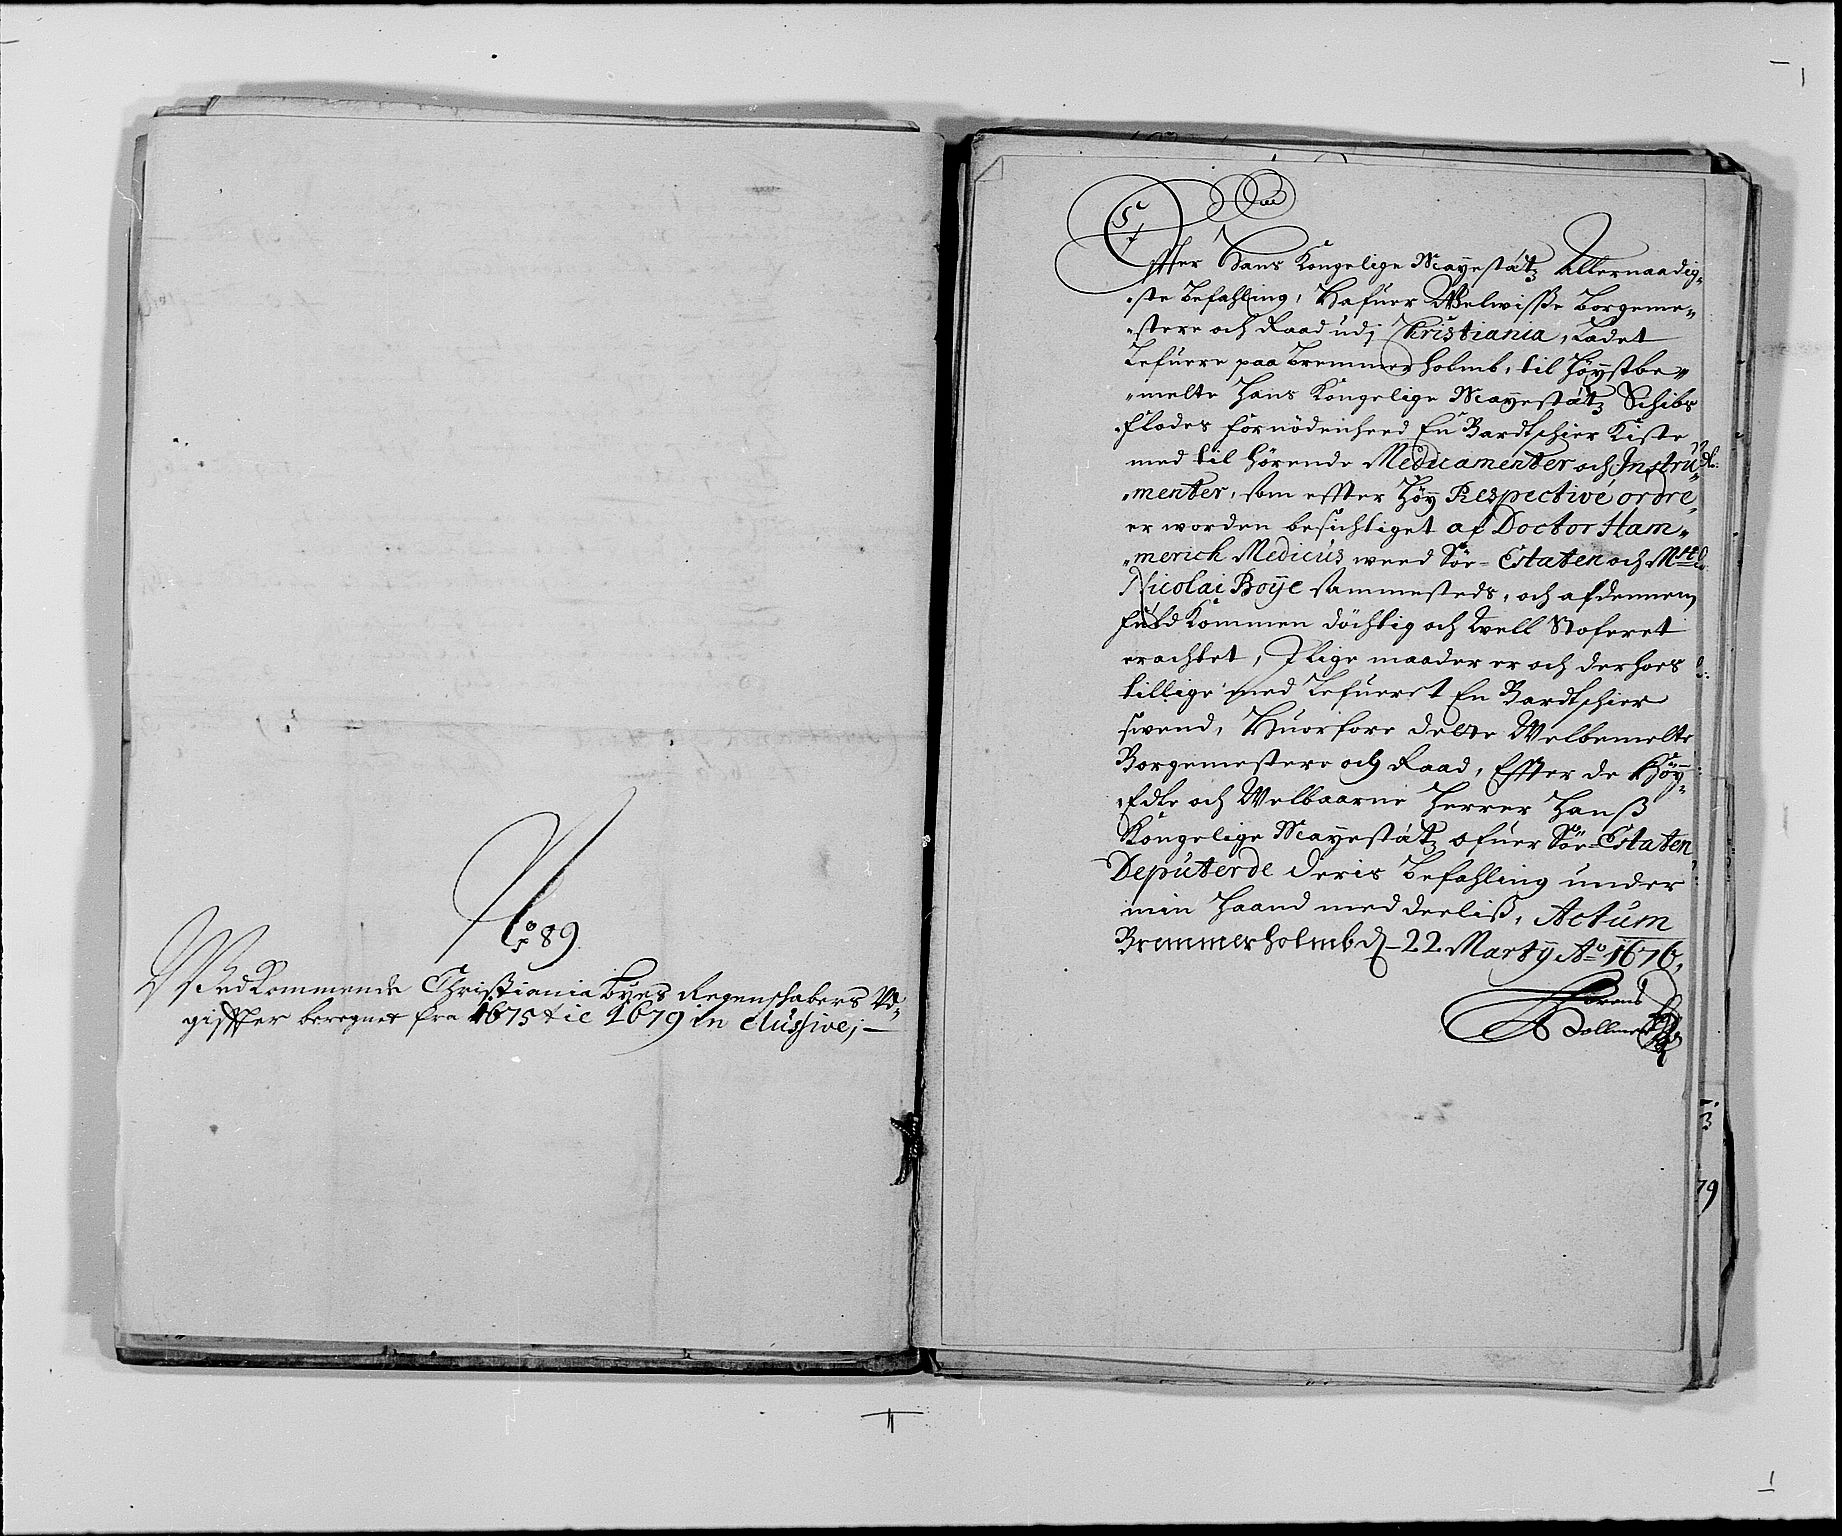 No 89.
WedKommende Christiania Byes Regenschabers Ud-
giffter beregnet fra 1675 til 1679 inclussive; —
Effter Hans Kongelige Mayestätz Allernaadig-
-ste Befahling, Hafuer Welwisse Borgeme-
-stere och Raad udj Christiania, Ladet
Lefuere paa Bremmerholmb, til Höystbe-
-melte Hans Kongelige Mayestätz Schibs
Flodes fornödenheed En Bardtschier Kiste
med til hörende Medicamenter och Instru-
-menter, som effter Höy Respective ordre,
er worden besichtiget af Doctor Ham-
-merich Medicus weed Söe-Estaten och Mstr
Nicolai Boÿe sammesteds, och af dennem
fuldkommen döchtig och well Stoferet
erachtet, J lige maader er och derhoes
tillige med Lefueret En Bardtschier
swend, Huorfore dette Welbemelte
Borgemestere och Raad, Effter de Höy-
Edle och Welbaarne Herrer Hanß
Kongelige Mayestätz ofuer Söe-Estaten
Deputerde deris Befahling under
min Haand meddeeliß, Actum
Bremmerholmb d - 22 Martÿ Ao 1676,
79